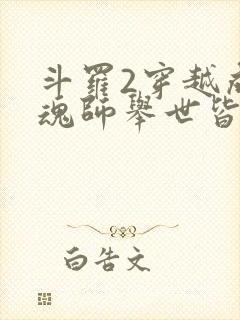 斗羅2穿越
魂師舉世皆
白告文